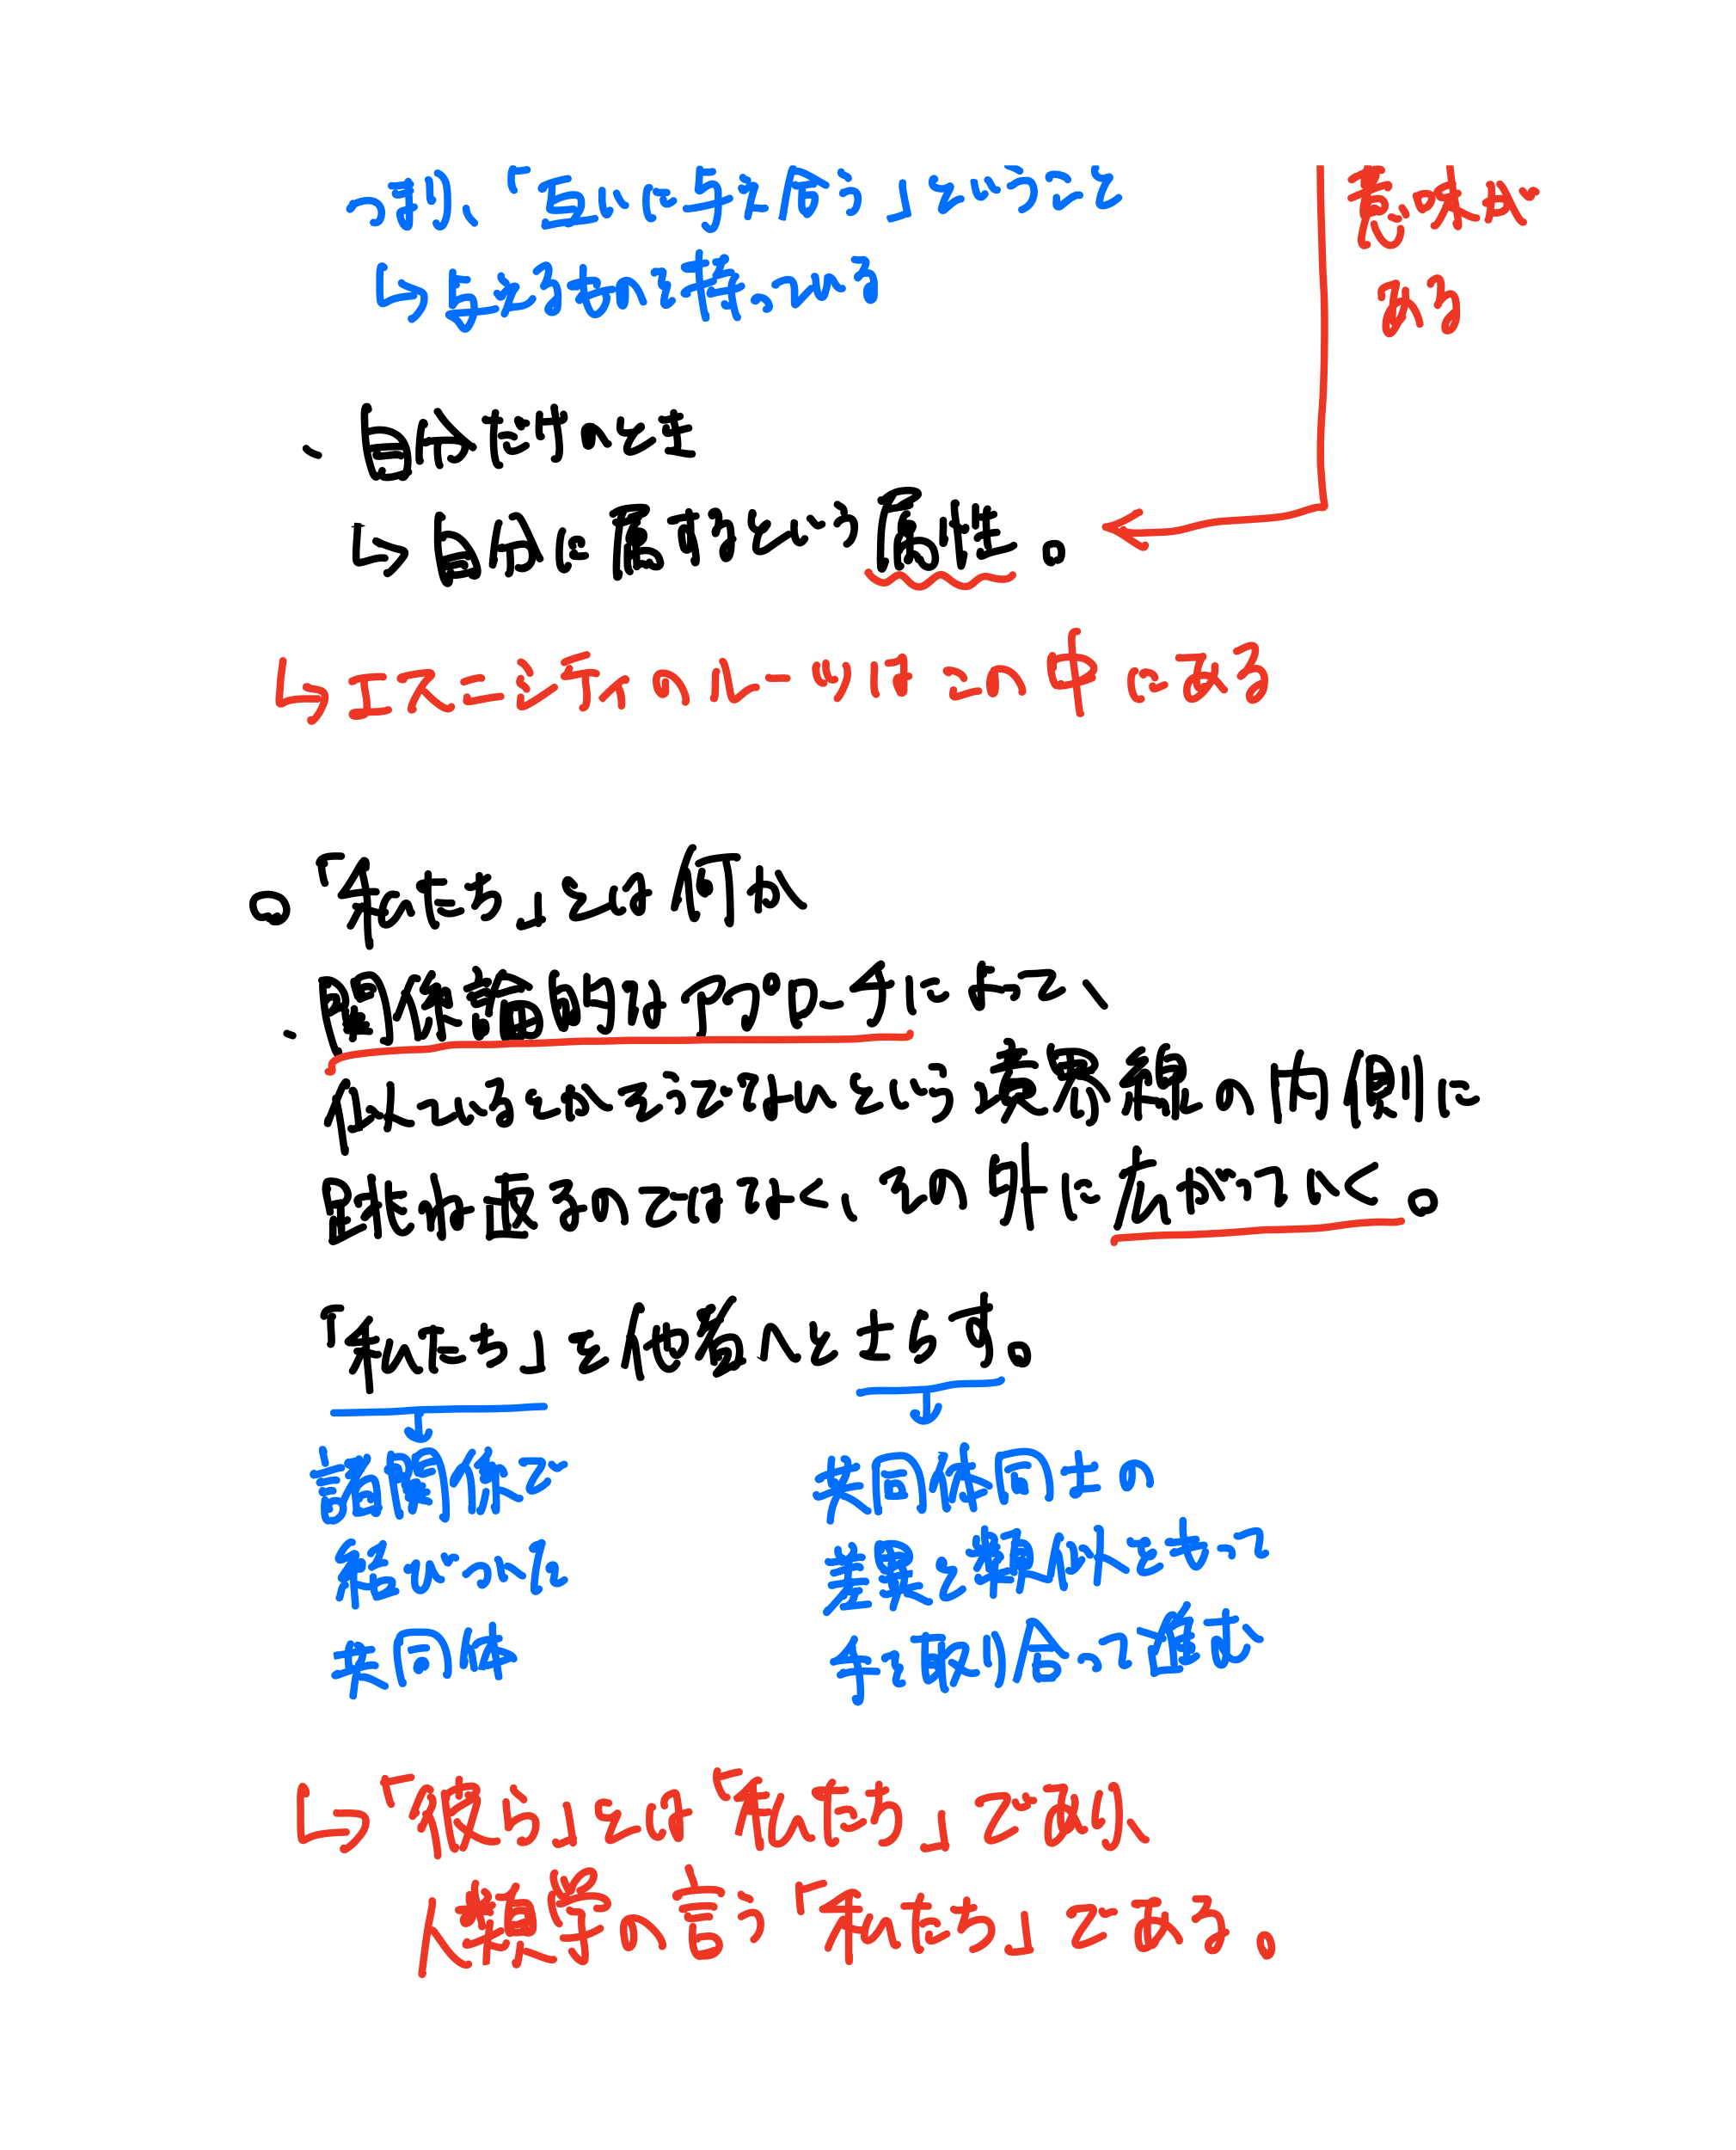 つまり、「互いに与え合う」ということ
↳ 与えるものを
意味が
ある
・自分だけの
↳ 自分に属するという属性。
↳ エスニシティのルーツはこの中にある
○「私たち」とは何か
・関係論的なアプローチによって、
似ているとかそうでないという境界線の内側に
跳ね返るのではなく、その外に広がっていく。
「私たち」を他者へと
諸関係で
結びついた
共同体
共同体同士の
差異と類似をもって
手を取り合って進む
↳「彼ら」とは「私たち」であり、
人類学の言う「私たち」である。